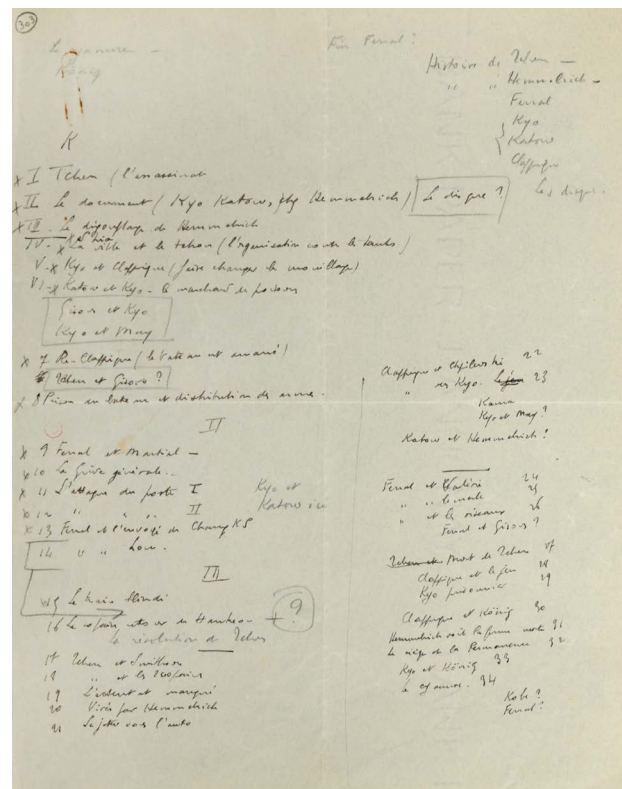 303
Le cyanure —
König
Fin Ferral ?
Histoire de Tchen —
" " Hemmelrich —
Ferral
Kyo
Katow
Clappique
Les disques.
K
x I Tchen (l'assassinat
x II Le document (Kyo Katow, Hemmelrich) Le disque ?
x III - Le Hemmelrich
IV - x La ville et le tchon (l'organisation contre les tanks)
V - x Kyo et Clappique (faire changer le mouillage)
VI - x Katow et Kyo - le marchand de poisson
Gisors et Kyo
Kyo et May
x 7 Re-Clappique (le bateau est amarré)
(Tchen et Gisors ?
x 8 Prise du bateau et distribution des armes.
II
x 9 Ferral et Martial —
x 10 La Grève générale. —
x 11 L'attaque du poste I
x 12 " " II
Kyo et
Katow ici
x 13 Ferral et l'envoyé de Chang KS
14 " " Lou.
III
x 15 le train blindé
16 Hankeou + 9
la révolution de Tchen
17 Tchen et Smithson
18 " et les
19 L'attentat manqué
20 Viré par Hemmelrich
21 Se jette sous l'auto
Clappique et Chpilewski 22
" des Kyo. 23
Kama
Kyo et May ?
Katow et Hemmelrich ?
Ferral et Valérie 24
" " le merle 25
" et les oiseaux 26
Ferral et Gisors ?
Mort de Tchen 27
Clappique et le jeu 28
Kyo prisonnier 29
Clappique et König 30
Hemmelrich voit la femme morte 31
Le siège de la Permanence 32
Kyo et König 33
Le cyanure. 34
Kobe ?
Ferral ?